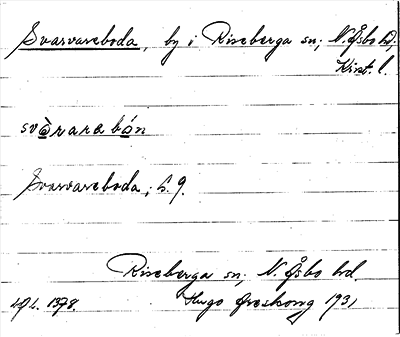 Svarvareboda, by i Riseberga sn; N. Åsbo hd.
Krist. l.
svàrarabón
Svarvareboda; h. 9.
Riseberga sn; N. Åsbo hd.
Hugo Areskoug 1931